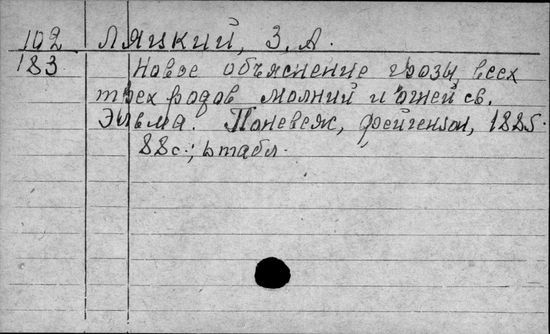 102 Ляцкий, З. А.
183 Новое объяснение грозы, всех
трех родов молний и огней св.
Эльма. Поневеж, Фейгензон, 1885.
88с.; табл.